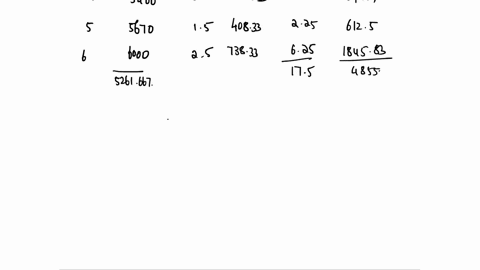 5 5670 1.5 408.33 2.25 612.5
6 6000 2.5 738.33 6.25 1845.83
5261.667. 17.5 4855